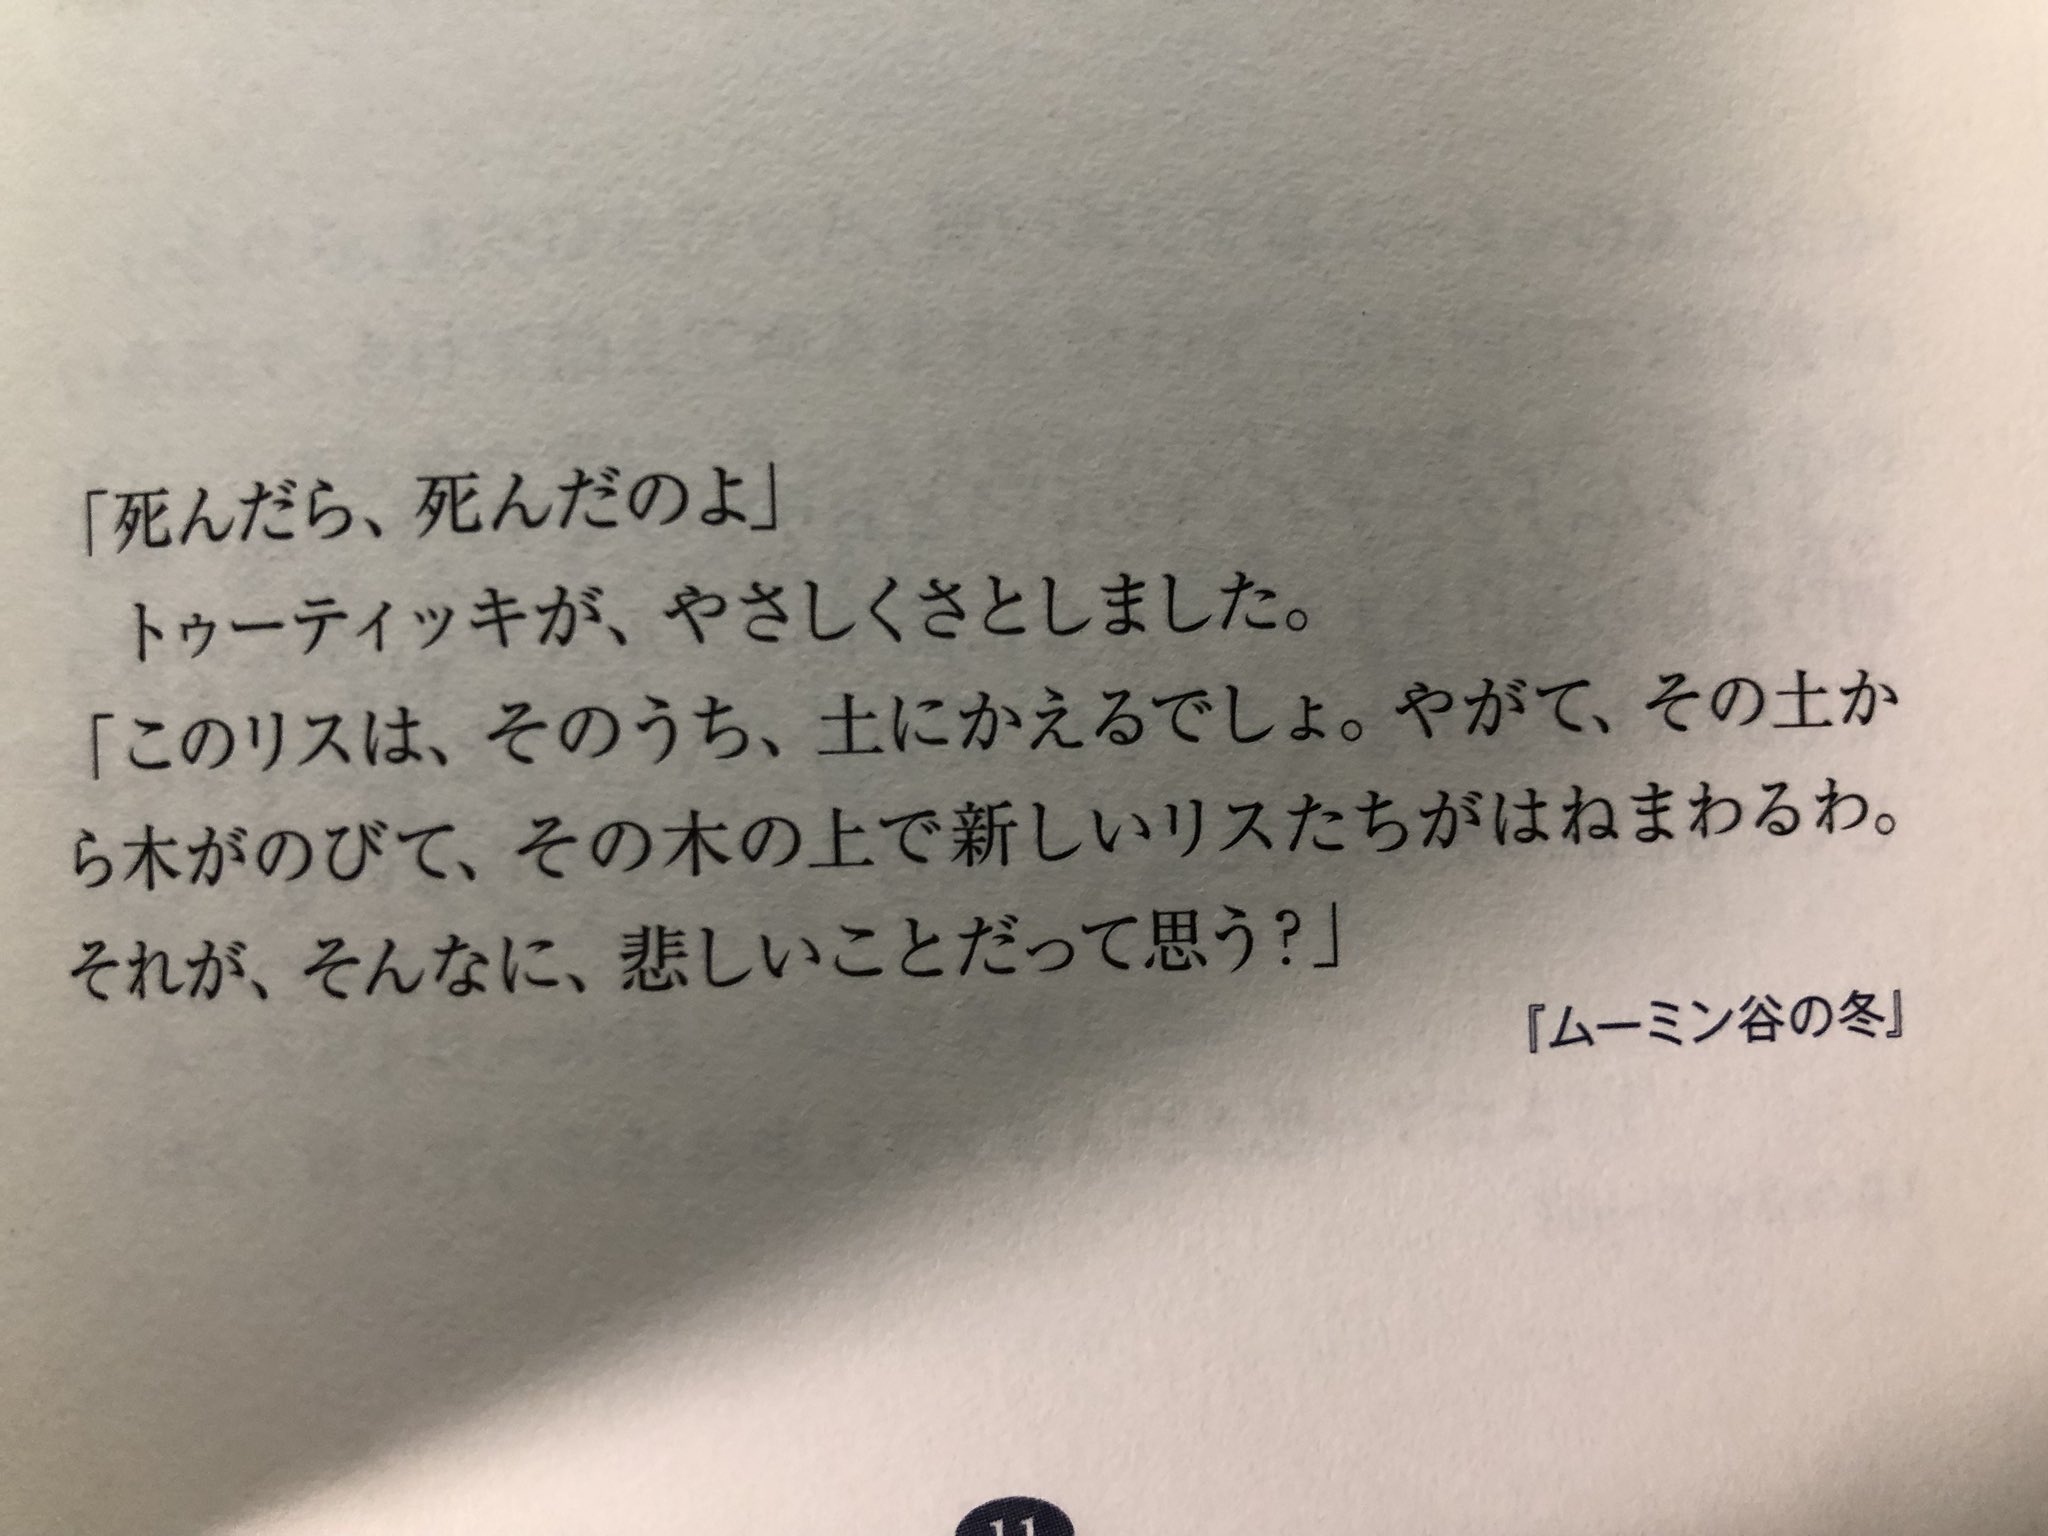 「死んだら、死んだのよ」
トゥーティッキが、やさしくさとしました。
「このリスは、そのうち、土にかえるでしょ。やがて、その土か
ら木がのびて、その木の上で新しいリスたちがはねまわるわ。
それが、そんなに、悲しいことだって思う?」
『ムーミン谷の冬』
11